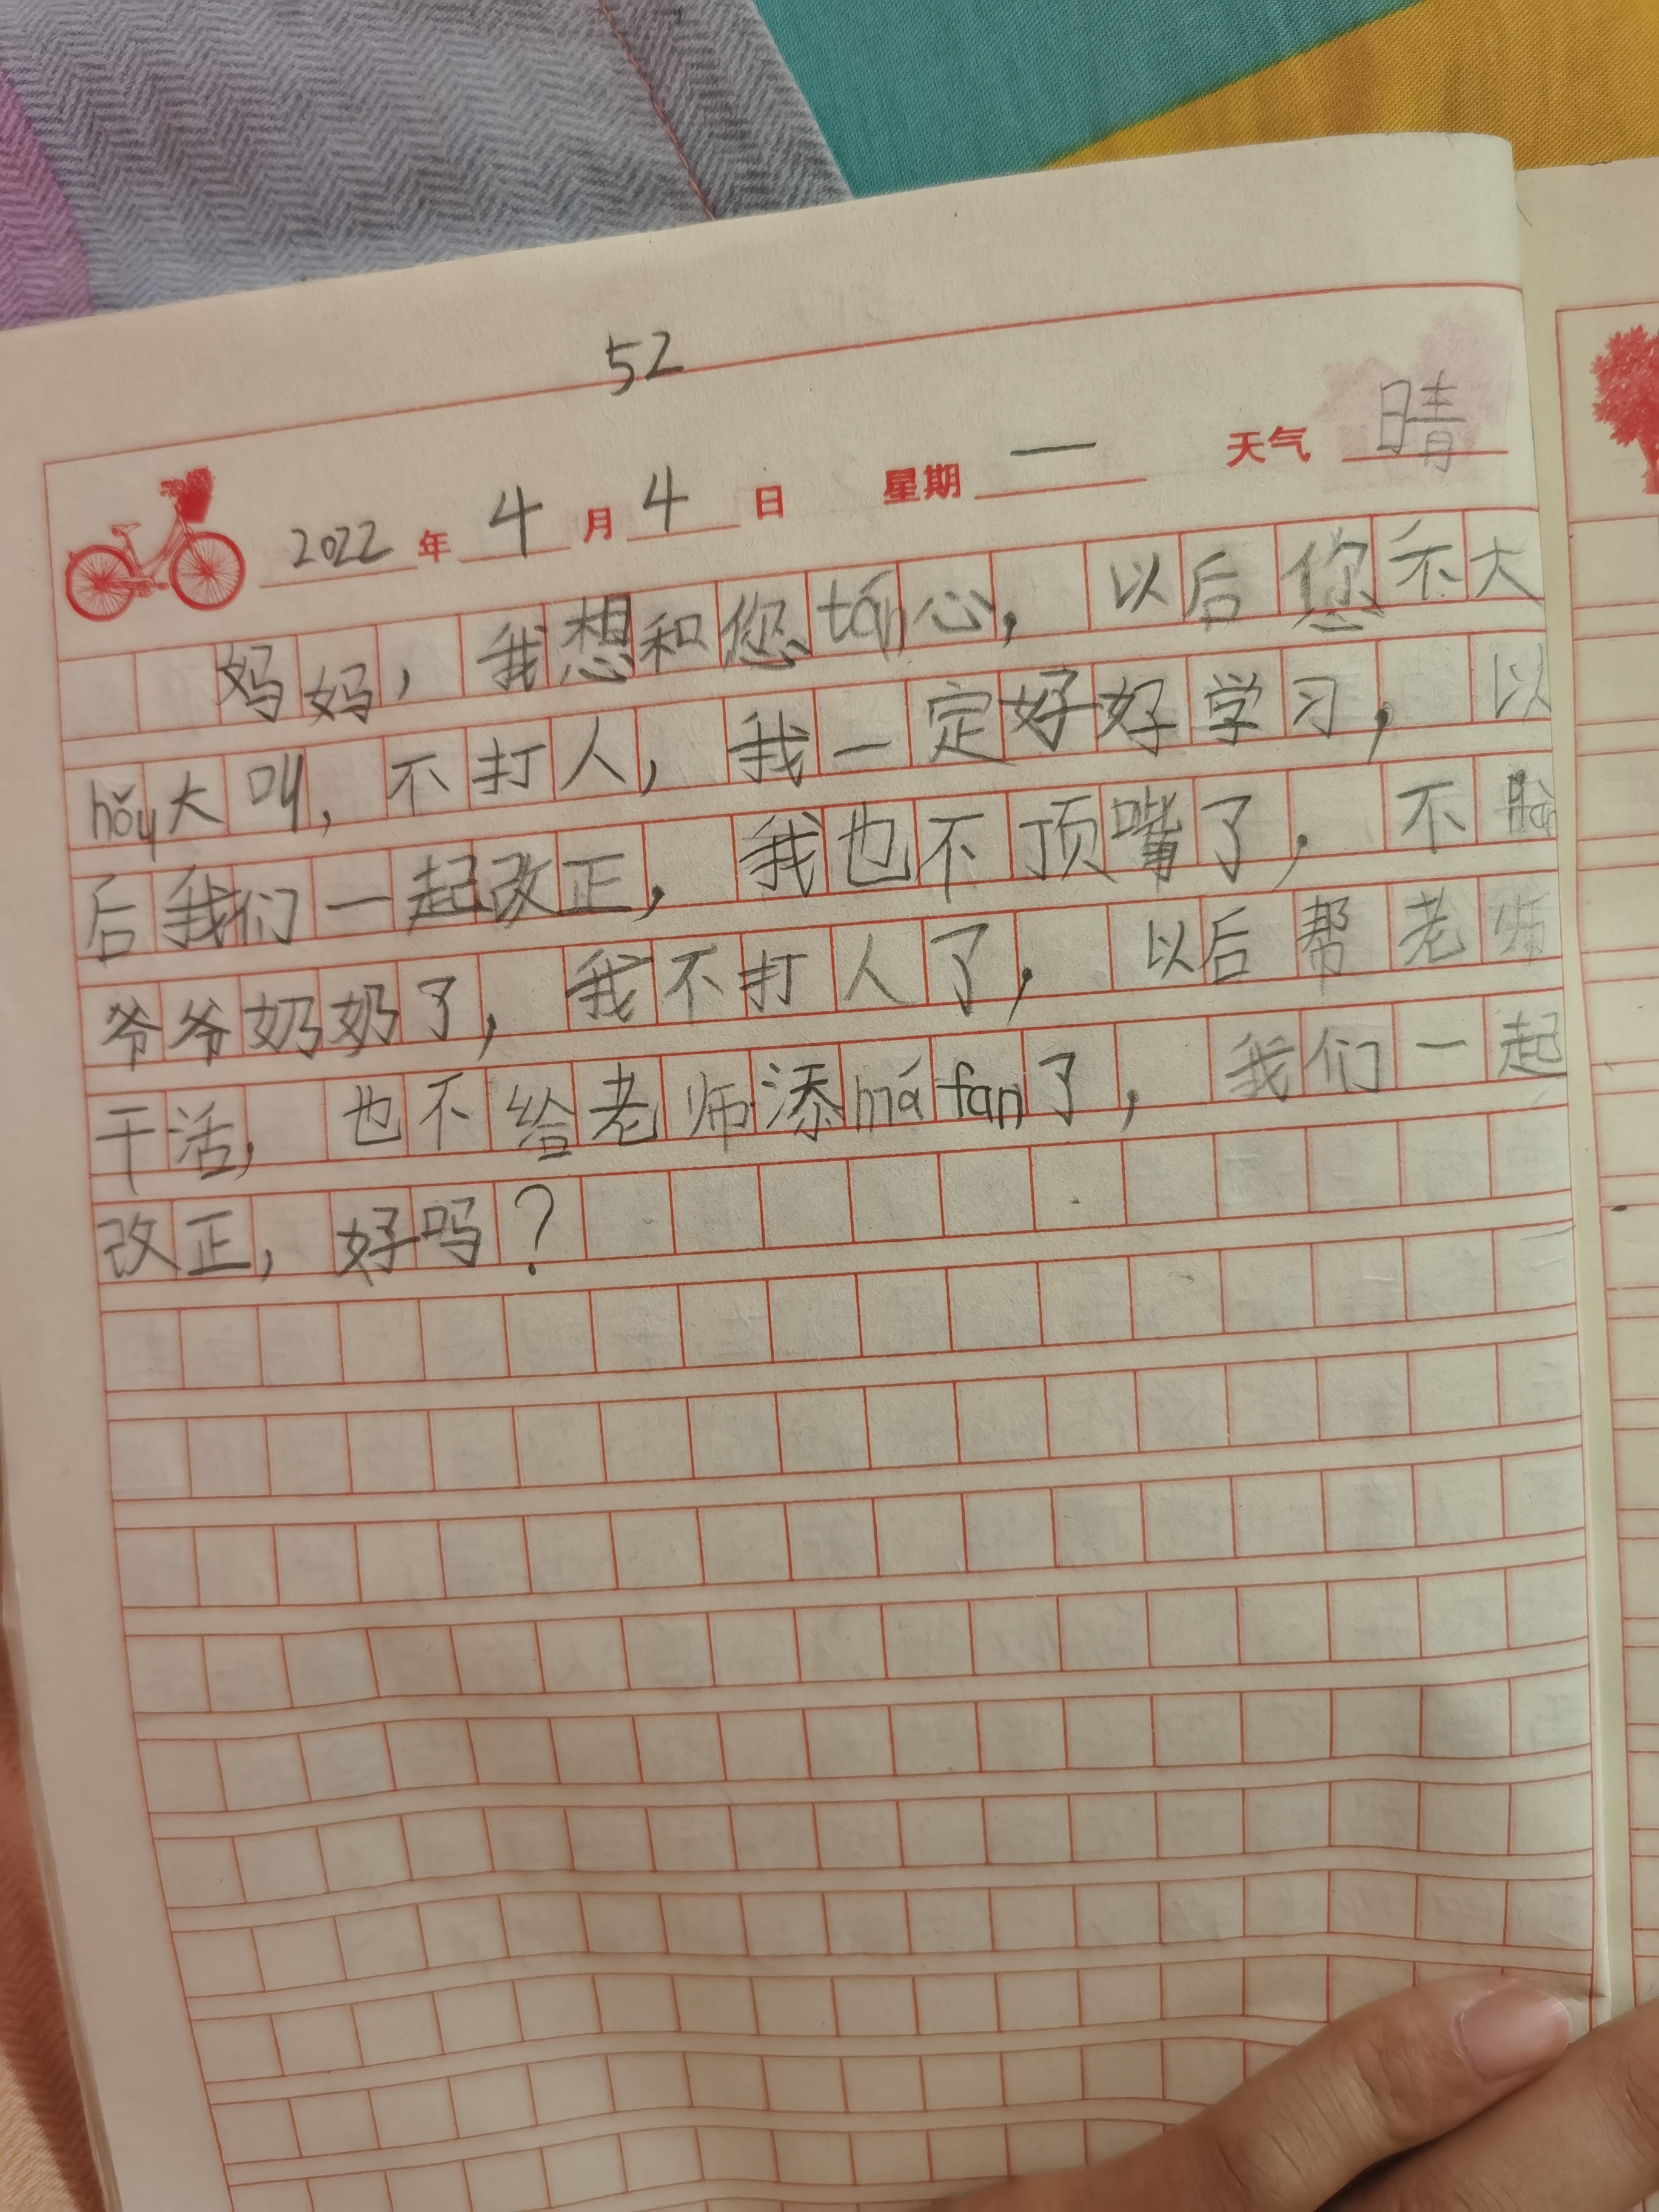 52
2022年4月4日 星期一 天气晴
妈妈，我想和您tán心，以后您不大
hǒu大叫，不打人，我一定好好学习，以
后我们一起改正，我也不顶嘴了，不
爷爷奶奶了，我不打人了，以后帮老师
干活，也不给老师添máfan了，我们一起
改正，好吗？